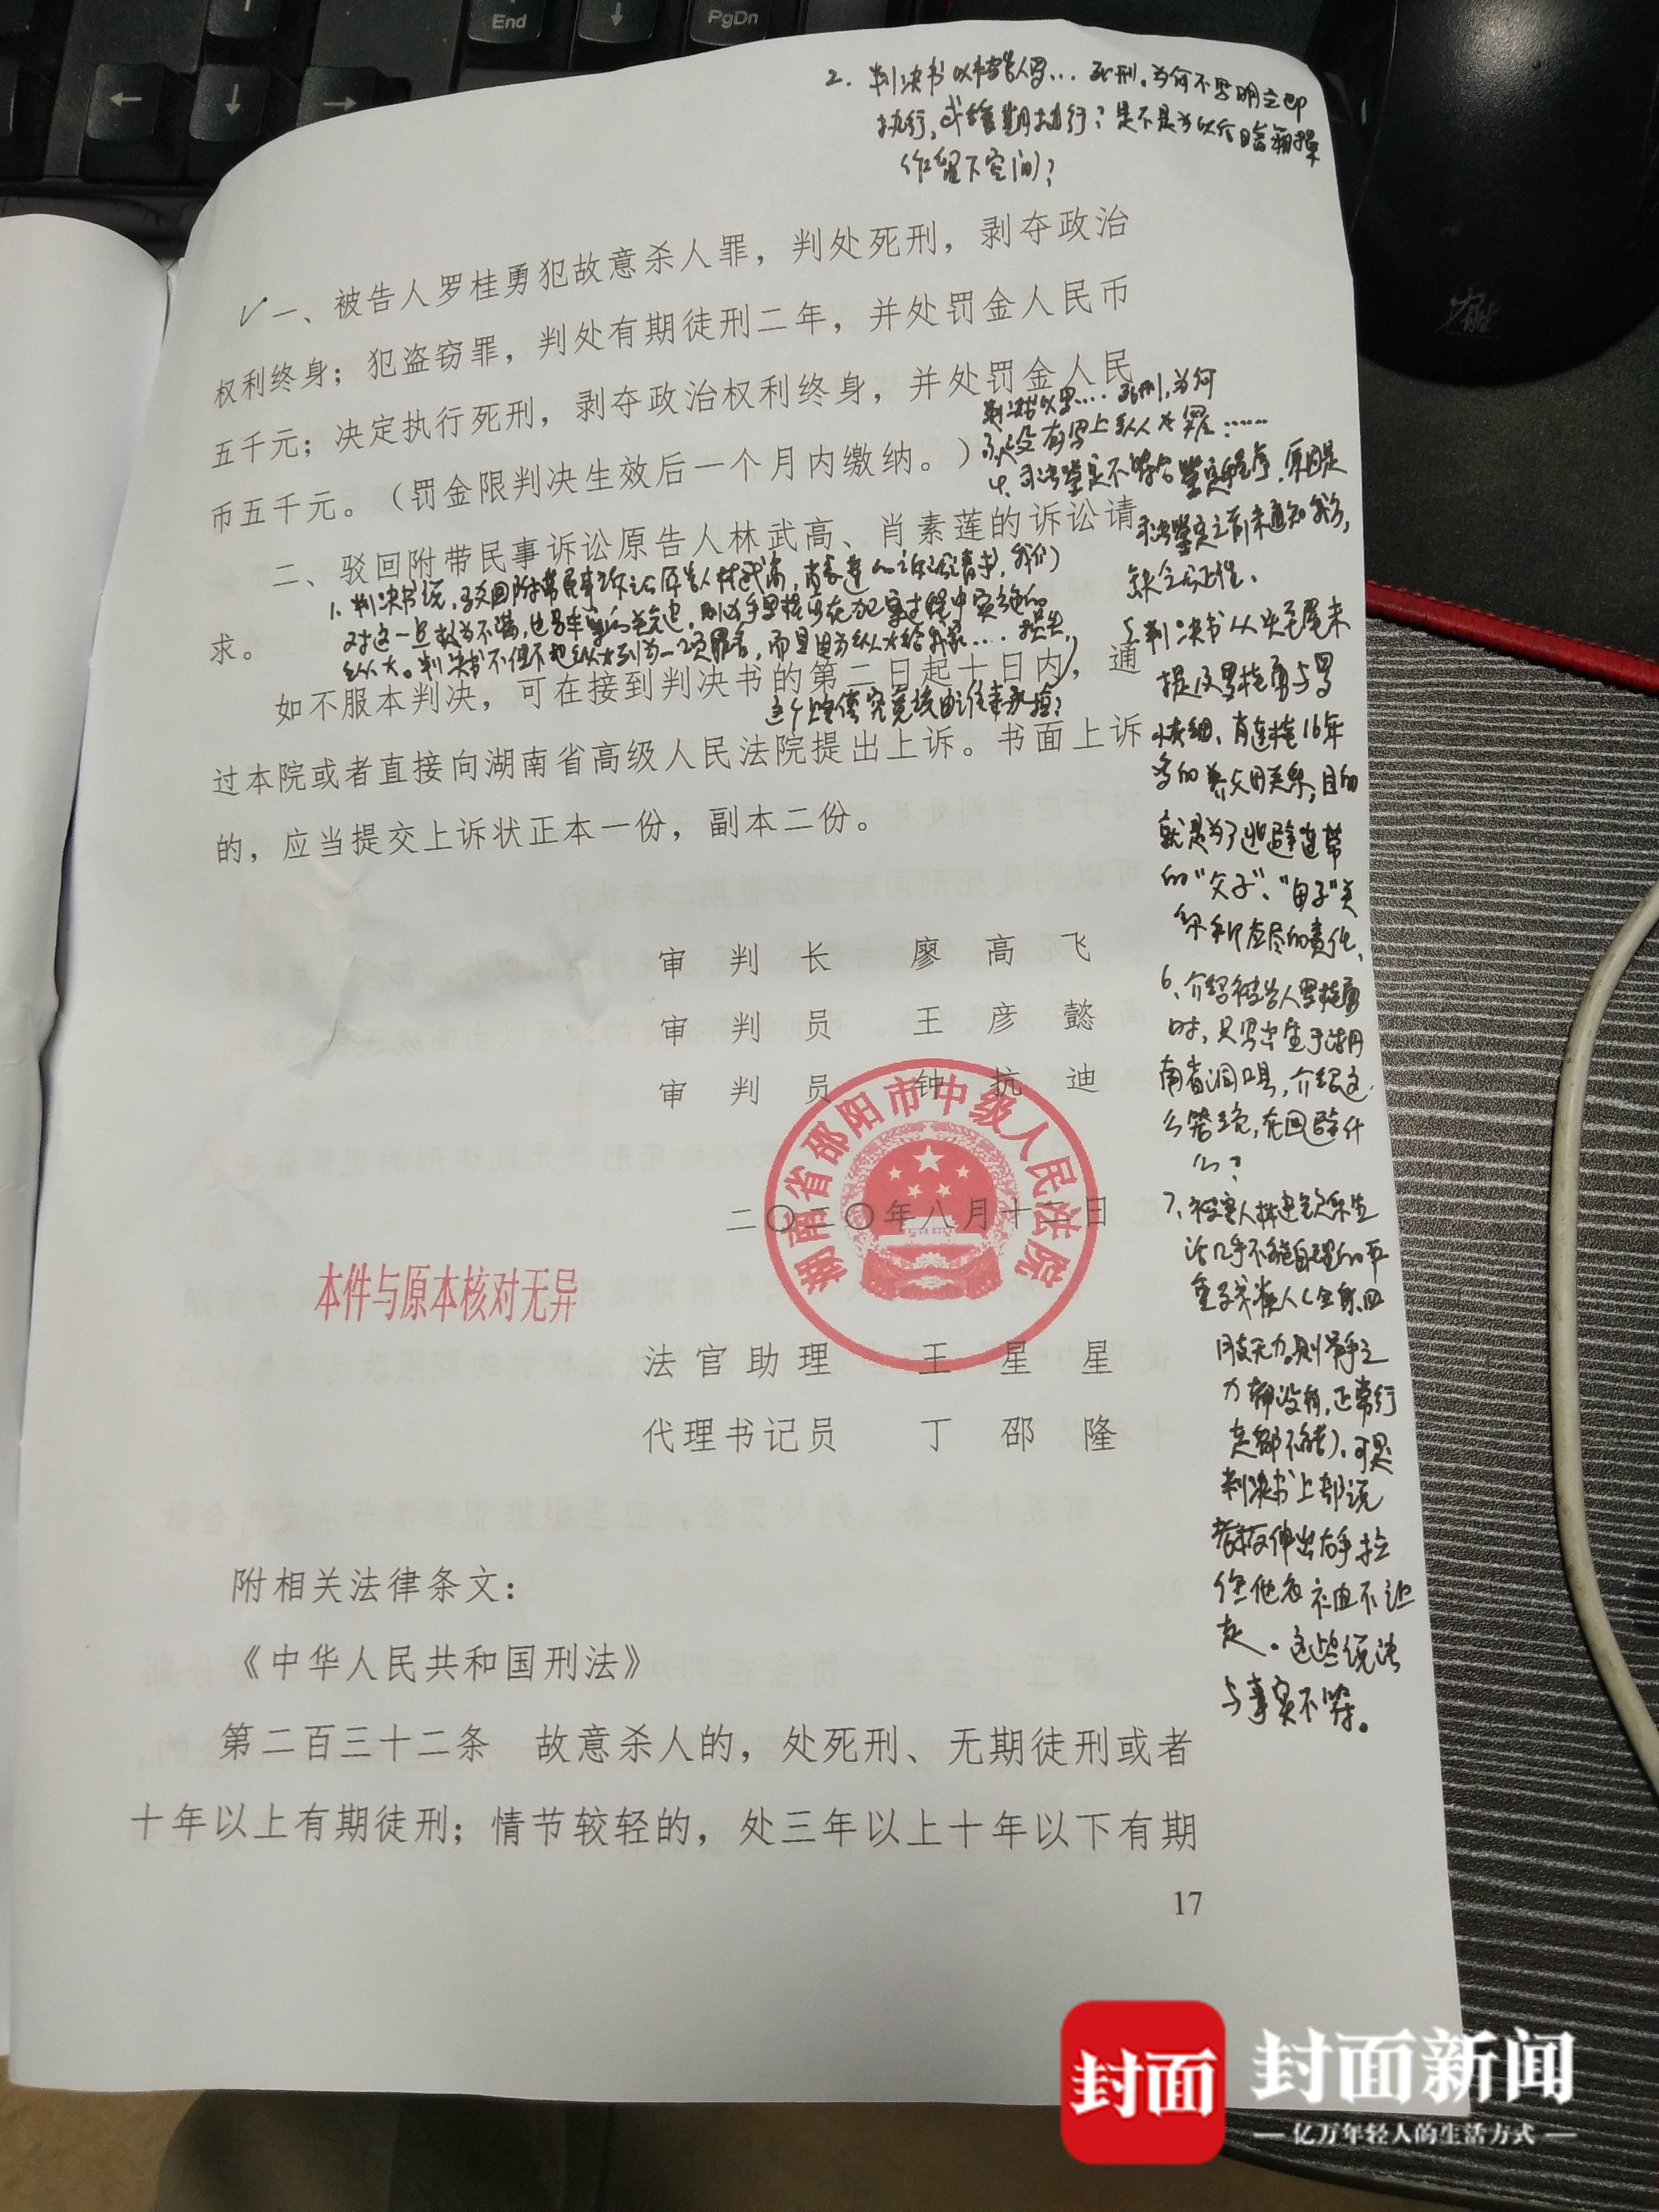 End
PgDn
2. 判决书以被告人罗…死刑,为何不写明立即
执行,或缓期执行?是不是为以后暗箱操
作留下空间?
一、被告人罗桂勇犯故意杀人罪，判处死刑，剥夺政治
权利终身；犯盗窃罪，判处有期徒刑二年，并处罚金人民币
五千元；决定执行死刑，剥夺政治权利终身，并处罚金人民
币五千元。（罚金限判决生效后一个月内缴纳。）
二、驳回附带民事诉讼原告人林武高、肖素莲的诉讼请
求。
1. 判决书说,驳回附带民事诉讼原告人林武高,肖素莲的诉讼请求,我们
纵火。判决书不但不把纵火列为一项罪名,而且因为纵火给我家……损失,
这个赔偿究竟该由谁来承担?
如不服本判决，可在接到判决书的第二日起十日内，通
过本院或者直接向湖南省高级人民法院提出上诉。书面上诉
的，应当提交上诉状正本一份，副本二份。
判决书以罗…死刑,为何
没有写上纵火罪……
4、司法鉴定不符合鉴定程序,原因是
司法鉴定之前未通知我方,
缺合法性、
5、判决书从头至尾未
提及罗桂勇与罗
肖连桂16年
多的养父母关系,目的
就是为了逃避连带
的"父子"、"母子"关
系所应尽的责任、
6、介绍被告人罗桂勇
时,只写出生于湖
南省洞口县,介绍这
么笼统,在回避什
么?
7、被害人林
活几乎不能自理的严
重残疾人(全身四
肢无力,
力都没有,正常行
走都不能)、可是
判决书上却说
伸出右手拉
住他衣
走。这些说法
与事实不符。
审判长 廖高飞
审判员 王彦懿
审判员 钟抗迪
湖南省邵阳市中级人民法院
二〇二〇年八月十 日
本件与原本核对无异
法官助理 王星星
代理书记员 丁邵隆
附相关法律条文：
《中华人民共和国刑法》
第二百三十二条 故意杀人的，处死刑、无期徒刑或者
十年以上有期徒刑；情节较轻的，处三年以上十年以下有期
17
封面
封面新闻
亿万年轻人的生活方式